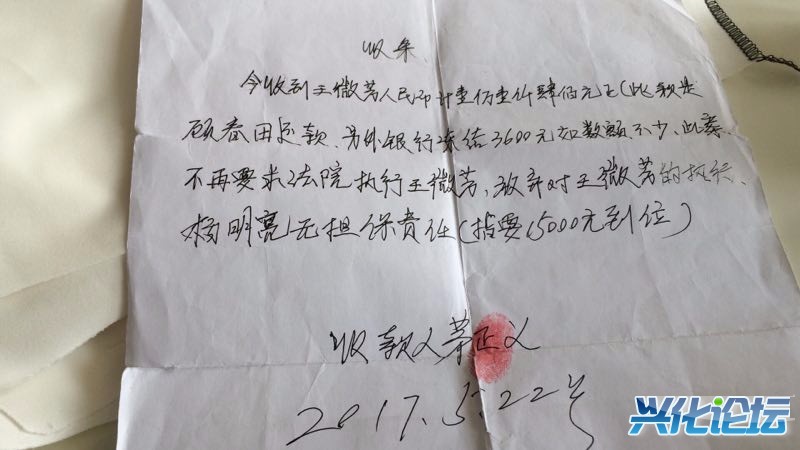 收条
今收到王微芳人民币计壹万壹仟肆佰元正(此款是
顾春田还款、另外银行冻结3600元如数额不少、此案
不再要求法院执行王微芳、放弃对王微芳的执行、
杨明亮无担保责任(指要15000元到位)
收款人 正义
2017.5.22号
兴化论坛